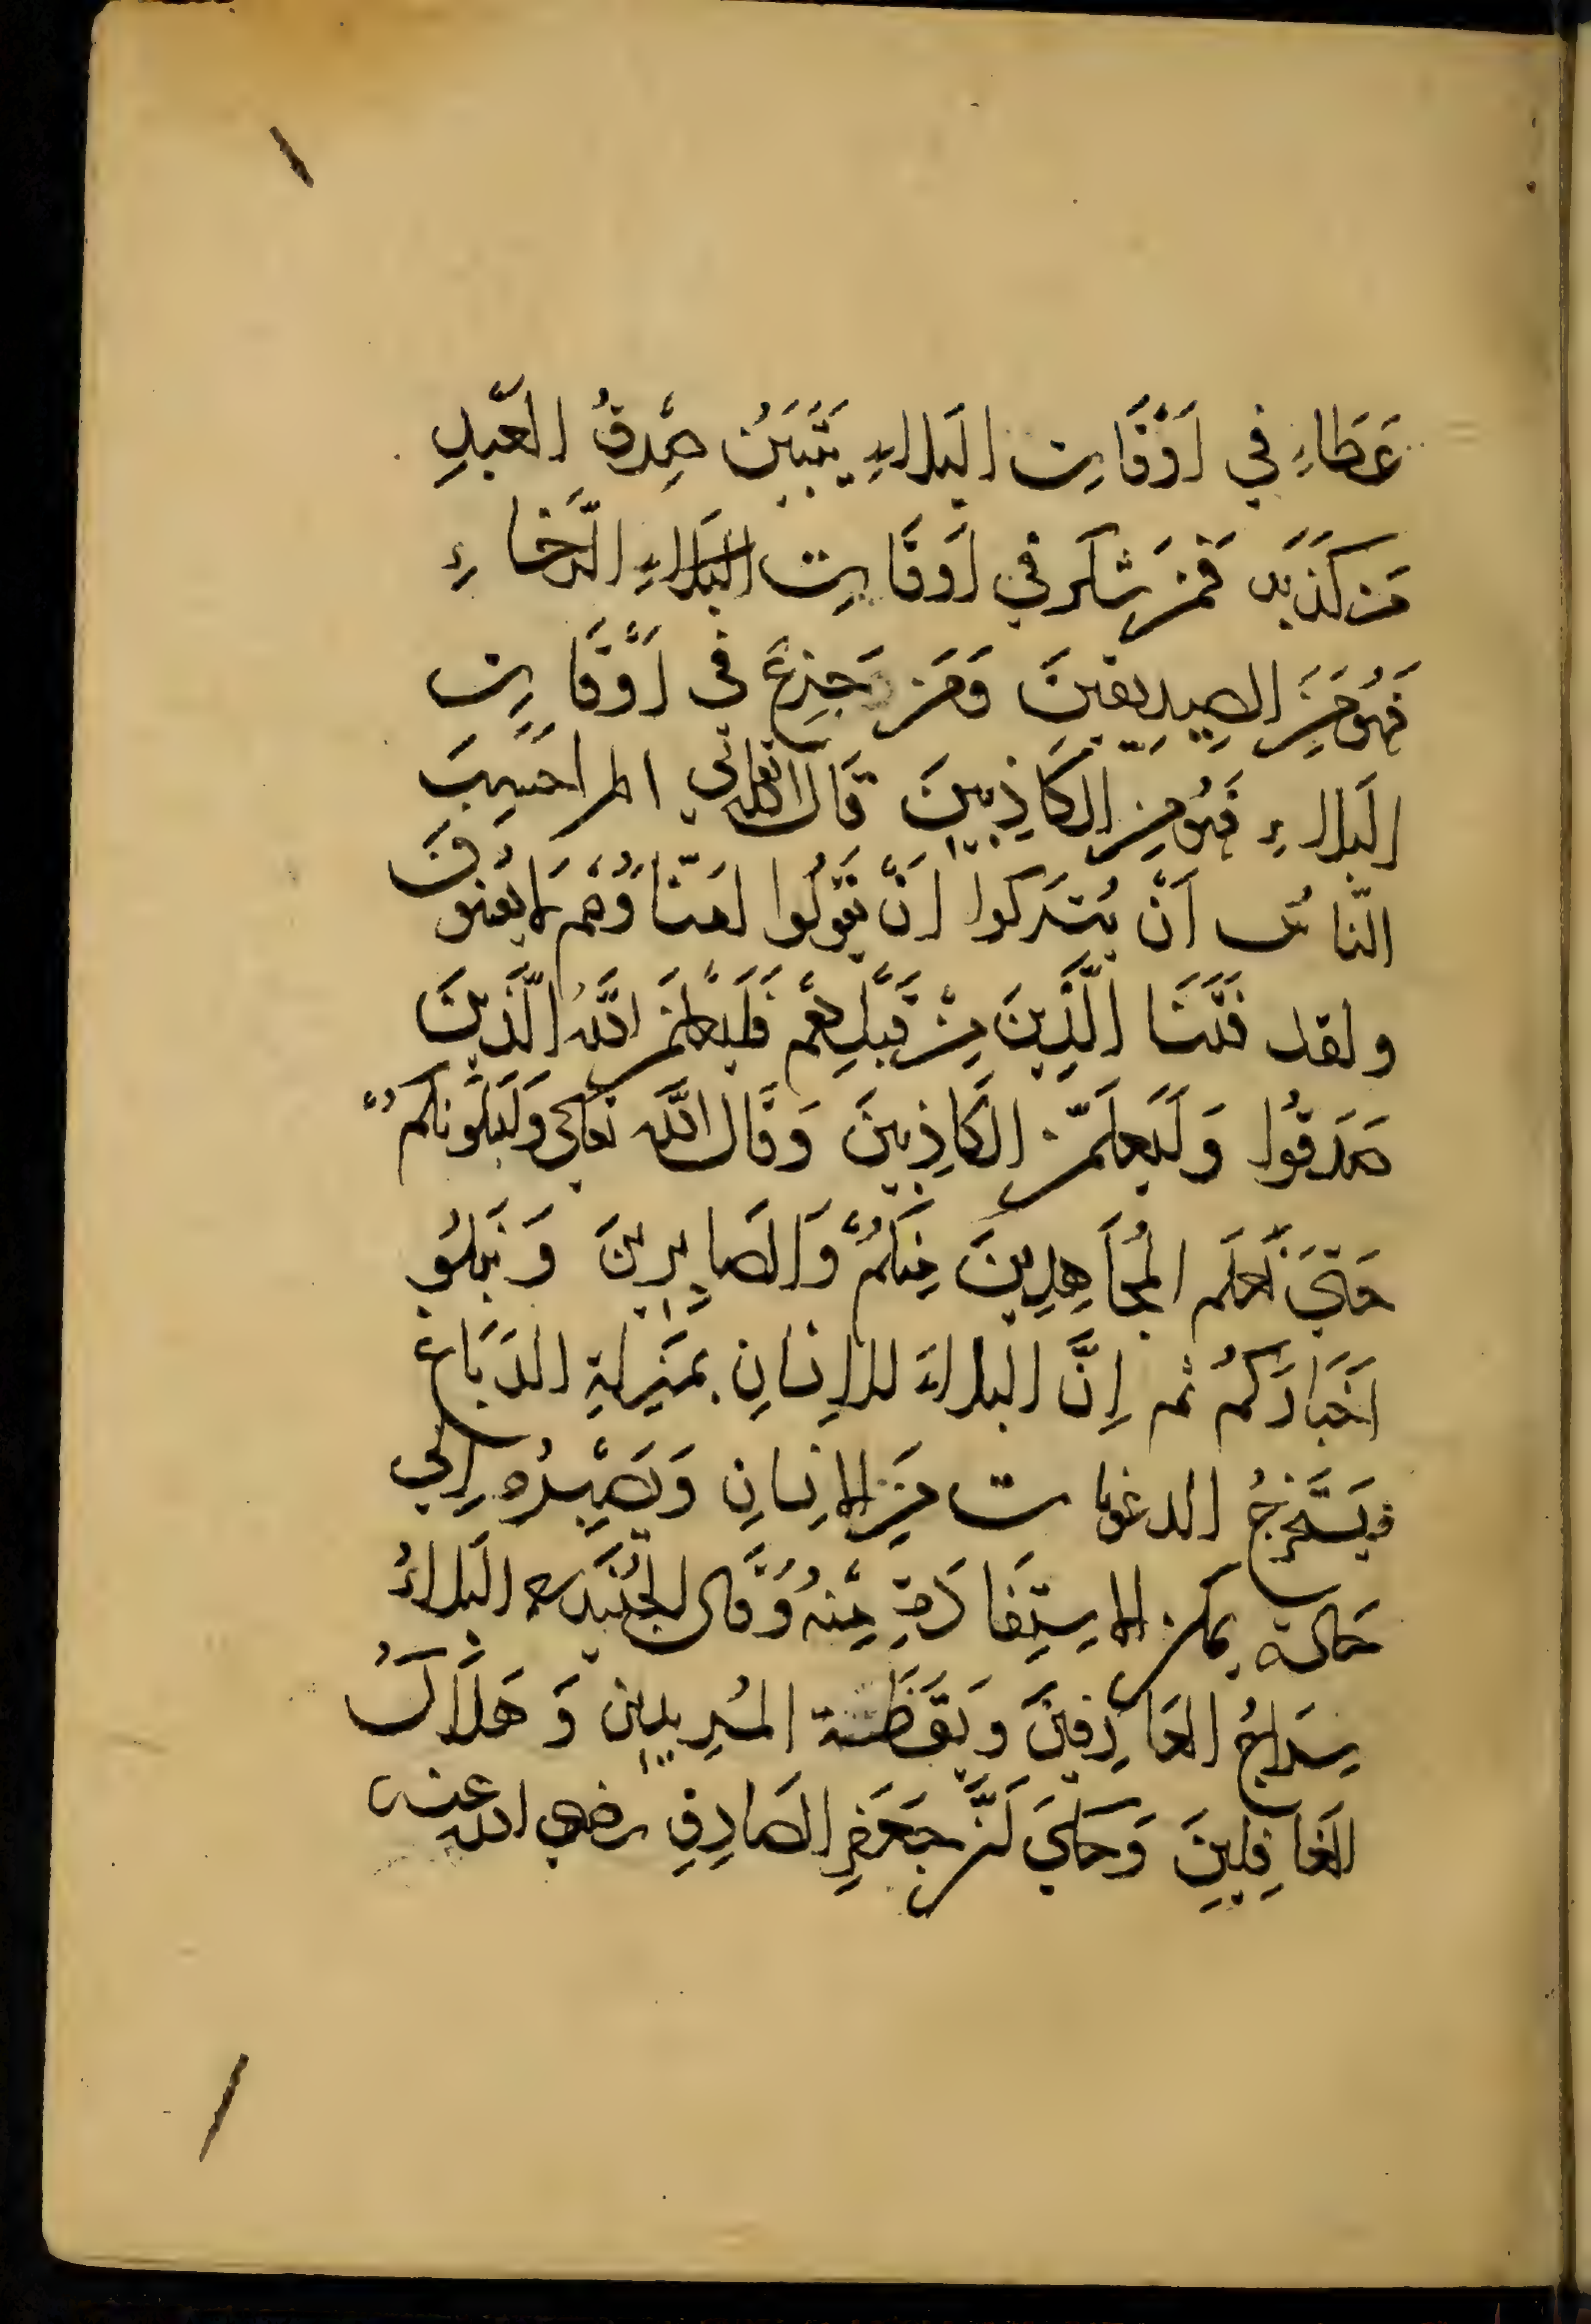 عَطَاءِ في اَوْقَاتِ البَلاءِ يَتَبَيَنُ صِدْقُ العَبْدِ
مَن كَذَبَه فَمَن شكَر في اَوقَاتِ البَلاءِ الرَّخاءِ
فَهُوَ مِنَ الصِدِيقينَ وَمَن جَزِعَ في اَوْقَاتِ
البَلاءِ فَهُوَ مِن الكَاذِبينَ قَالَ الله تعالي الم احَسِبَ
النّاسُ اَنْ يُتْرَكوا اَنْ يَقُولُوا امَنّا وَهُمْ لا يُفتنونَ
ولقد فَتَنَّا الَّذِينَ مِنْ قَبْلِهِمْ فَلَيَعْلَمَن اللَّهُ الَّذِينَ
صَدَقُوا وَلَيَعلَمَنّ الكَاذِبينَ وَقَالَ اللَّه تعالى وَلَنَبْلُونكُمْ
حَتيَ نَعلَم المُجَاهِدِينَ مِنكُمْ وَالصَابِرِينَ وَنَبْلُوَ
اَخبَارَكُمْ ثم اِنَّ البلاءَ للاِنسَانِ بمَنزِلَةِ الدَبَاغِ
فيَسْتَخرِجُ الدعونات مِنَ الانِسَانِ وَيَصِيرُه اِلي
حَالة يمكن الاستِفَادَةِ مِنْهُ وَقَال الجُنَيد رح البَلاءُ
سِرَاجُ العَارِفينَ وَيَقَظَة المُرِيدِين وَهَلَاكُ
الغَافِلِينَ وَحكيَ عَنْ جَعفَرِ الصَادِقِ رضي الله عنه